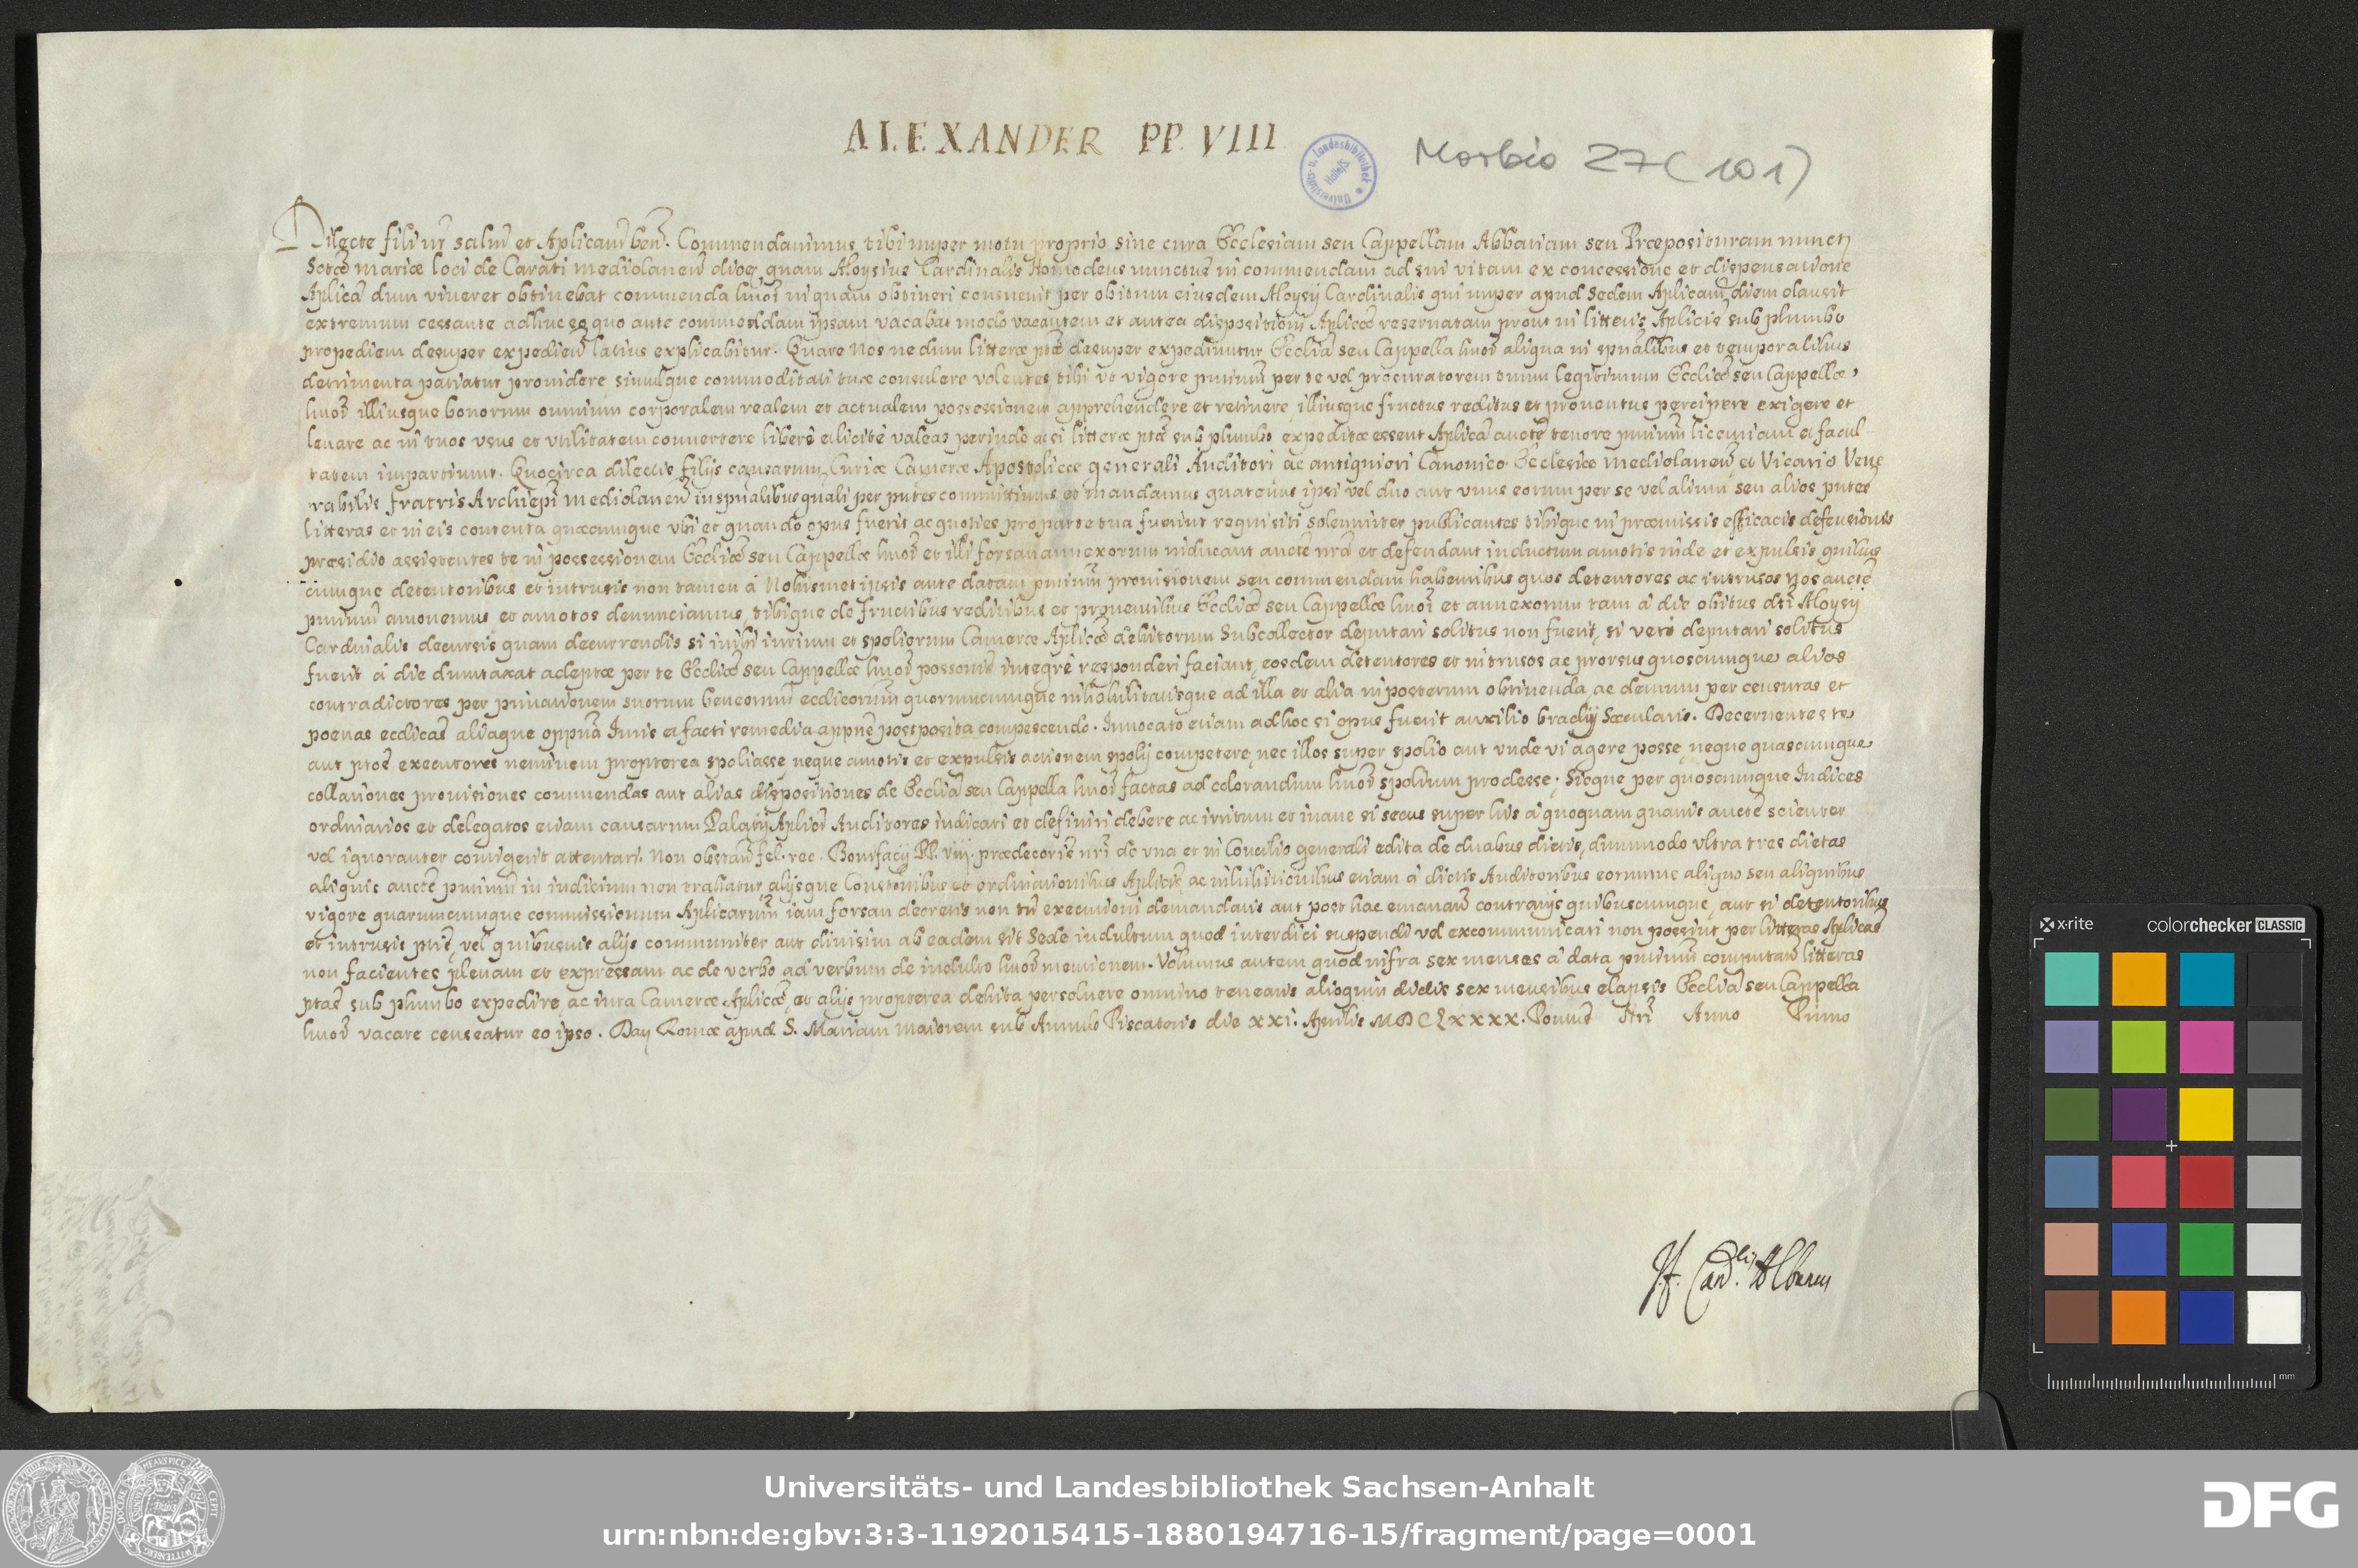 ALEXANDER PP. VIII
Morbio 27 (101)
Universitäts- u. Landesbibliothek Halle/S
Dilecte fili nr salm et Aplicam ben. Commendavimus tibi nuper motu proprio sine cura Ecclesiam seu Cappellam Abbatiam seu Præposituram nuncpt
Sctæ mariæ loci de Carati mediolanen dioc quam Aloysius Cardinalis Homodeus nunctus in commendam ad sui vitam ex concessione et dispensatione
Aplica dum viveret obtinebat commenda hmoi in quam obtineri consuevit per obitum eiusdem Aloysij Cardinalis qui nuper apud Sedem Aplicam diem clausit
extremum cessante adhuc eo quo ante commendam ipsam vacabat modo vacantem et antea dispositioni Aplicæ reservatam prout in litteris Aplicis sub plumbo
propediem desuper expedien latius explicabitur. Quare Nos ne dum litteræ ptæ desuper expediuntur Ecclia seu Cappella hmoi aliqua in spualibus et temporalibus
detrimenta patiatur providere simulque commoditati tuæ consulere volentes tibi vt vigore pntium per te vel procuratorem tuum legitimum Eccliæ seu Cappellæ
hmoi illiusque bonorum omnium corporalem realem et actualem possessionem apprehendere et retinere illiusque fructus reditus et proventus percipere exigere et
levare ac in tuos vsus et vtilitatem convertere liberè et licitè valeas perinde ac si litteræ ptæ sub plumbo expeditæ essent Aplica aucte tenore pntium licentiam et facul
tatem impartimur. Quocirca dilectis filijs causarum Curiæ Cameræ Apostolicæ generali Auditori ac antiquiori Canonico Ecclesiæ mediolanen et Vicario Vene
rabilis fratris Archiepi mediolanen in spualibus gnali per pntes committimus et mandamus quatenus ipsi vel duo aut vnus eorum per se vel alium seu alios pntes
litteras et in eis contenta quæcumque vbi et quando opus fuerit ac quoties pro parte tua fuerint requisiti solemniter publicantes tibique in præmissis efficacis defensionis
præsidio assistentes te in possessionem Eccliæ seu Cappellæ hmoi et illi forsan annexorum inducant aucte nra et defendant inductum amotis inde et expulsis quibus
cumque detentoribus et intrusis non tamen à Nobismet ipsis ante datam pntium provisionem seu commendam habentibus quos detentores ac intrusos Nos aucte
pntium amovemus et amotos denunciamus, tibique de fructibus reditibus et proventibus Eccliæ seu Cappellæ hmoi et annexorum tam à die obitus dti Aloysij
Cardinalis decursis quam decurrendis si inibi iurium et spoliorum Cameræ Aplicæ debitorum Subcollector deputari solitus non fuerit, si verò deputari solitus
fuerit à die dumtaxat adeptæ per te Eccliæ seu Cappellæ hmoi possonis integrè responderi faciant, eosdem detentores et intrusos ac prorsus quoscumque alios
contradictores per privationem suorum beneorum ecclicorum quorumcumque inhabilitatisque ad illa et alia in posterum obtinenda, ac demum per censuras et
poenas ecclicas aliaque oppna Iuris et facti remedia appne postposita compescendo. Invocato etiam ad hoc si opus fuerit auxilio brachij Sæcularis. Decernentes te
aut ptos executores neminem propterea spoliasse, neque amotis et expulsis actionem spolij competere, nec illos super spolio aut vnde vi agere posse, neque quascumque
collationes provisiones commendas aut alias dispositiones de Ecclia seu Cappella hmoi factas ad colorandum hmoi spolium prodesse; Sicque per quoscumque Iudices
ordinarios et delegatos etiam causarum Palatij Aplici Auditores iudicari et definiri debere ac irritum et inane si secus super his à quoquam quavis aucte scienter
vel ignoranter contigerit attentari. Non obstan fel. rec. Bonifacij PP. viij. prædecoris nri de vna et in Concilio generali edita de duabus dietis, dummodo vltra tres dietas
aliquis aucte pntium in iudicium non trahatur, alijsque Constonibus et ordinationibus Aplicis, ac inhibitionibus etiam à dictis Auditoribus eorumve aliquo seu aliquibus
vigore quarumcumque commissionum Aplicarum iam forsan decretis non tn executioni demandatis aut post hac emanan contrarijs quibuscumque, aut si detentoribus
et intrusis ptis, vel quibusvis alijs communiter aut divisim ab eadem sit Sede indultum quod interdici suspendi vel excommunicari non possint per litteras Aplicas
non facientes plenam et expressam ac de verbo ad verbum de indulto hmoi mentionem. Volumus autem quod infra sex menses à data pntium computan litteras
ptas sub plumbo expedire, ac iura Cameræ Aplicæ, et alijs propterea debita persolvere omnino tenearis alioquin dictis sex mensibus elapsis Ecclia seu Cappella
hmoi vacare censeatur eo ipso. Dat Romæ apud S. Mariam maiorem sub Annulo Piscatoris die xxi. Aprilis MDCLXXXX. Pontus Nri Anno Primo
J. F. Card.lis Albanus
x-rite colorchecker CLASSIC
mm
Universitäts- und Landesbibliothek Sachsen-Anhalt
urn:nbn:de:gbv:3:3-1192015415-1880194716-15/fragment/page=0001
DFG